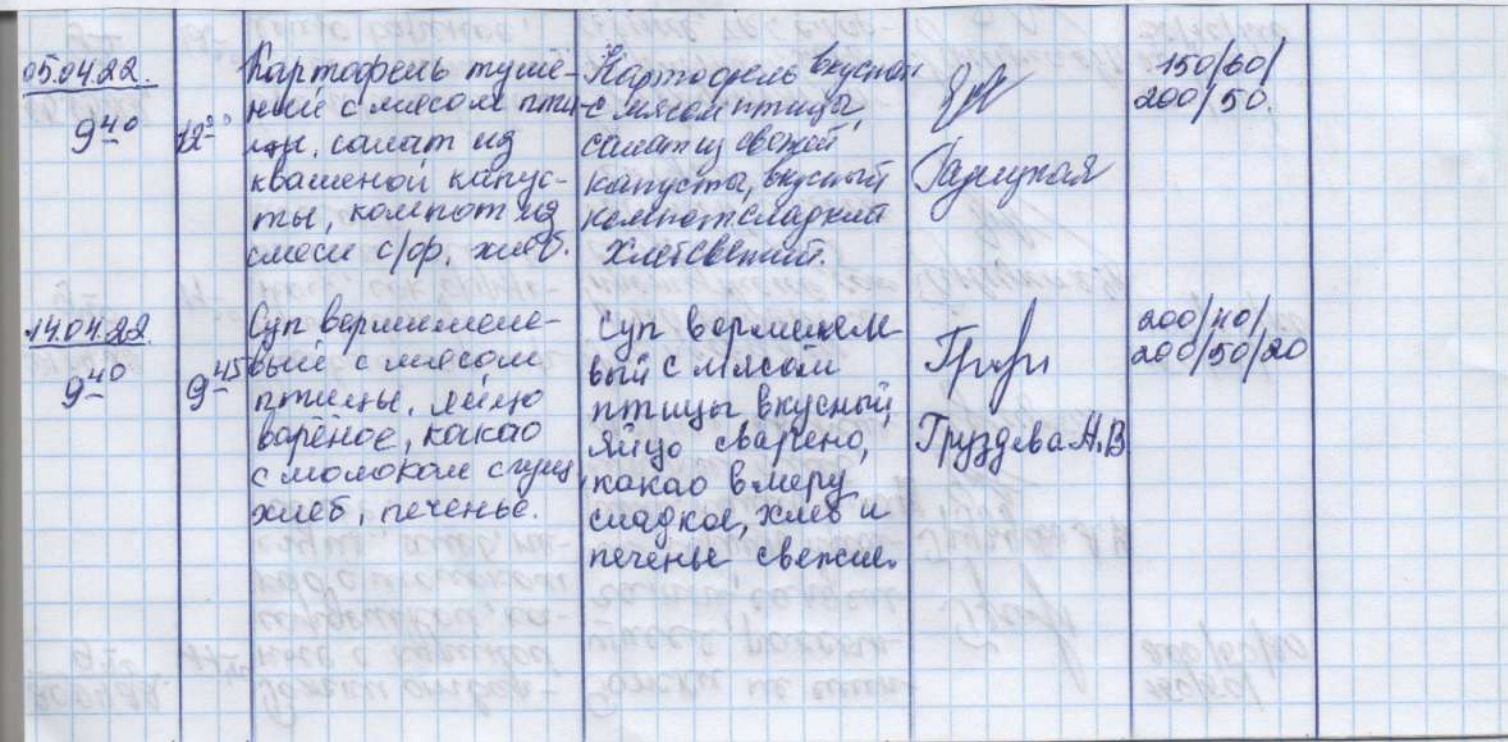 05.04.22.
9 40
12
Картофель туше-
ный с мясом пти-
цы, салат из
квашеной капус-
ты, компот из
смеси с/ф, хлеб.
Картофель вкусный
с мясом птицы,
салат из свежей
капусты, вкусный
компот сладкий
Хлеб свежий.
150/60/
200/50.
14.04.22.
9 40
9 45
Суп вермишеле-
вый с мясом
птицы, яйцо
варёное, какао
с молоком сгущ,
хлеб, печенье.
Суп вермишел
вый с мясом
птицы вкусный,
яйцо сварено,
какао в меру
сладкое, хлеб и
печенье свежие.
Груздева Н.В
200/40/
200/50/20